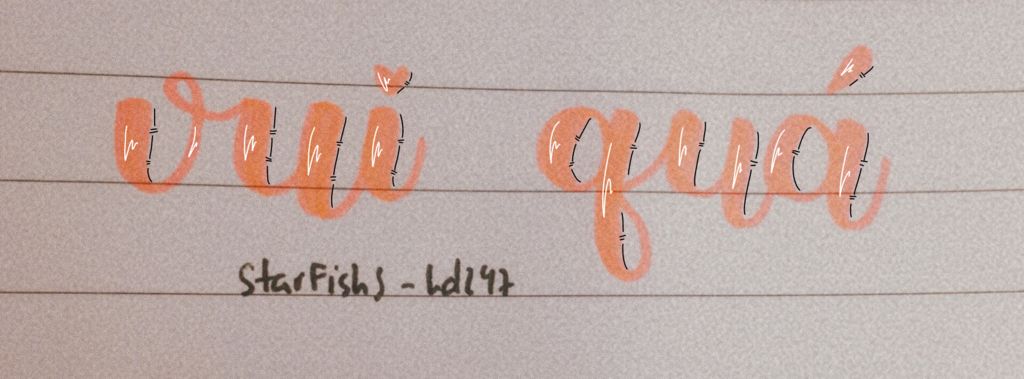 vui quá
StarFishs - hd247